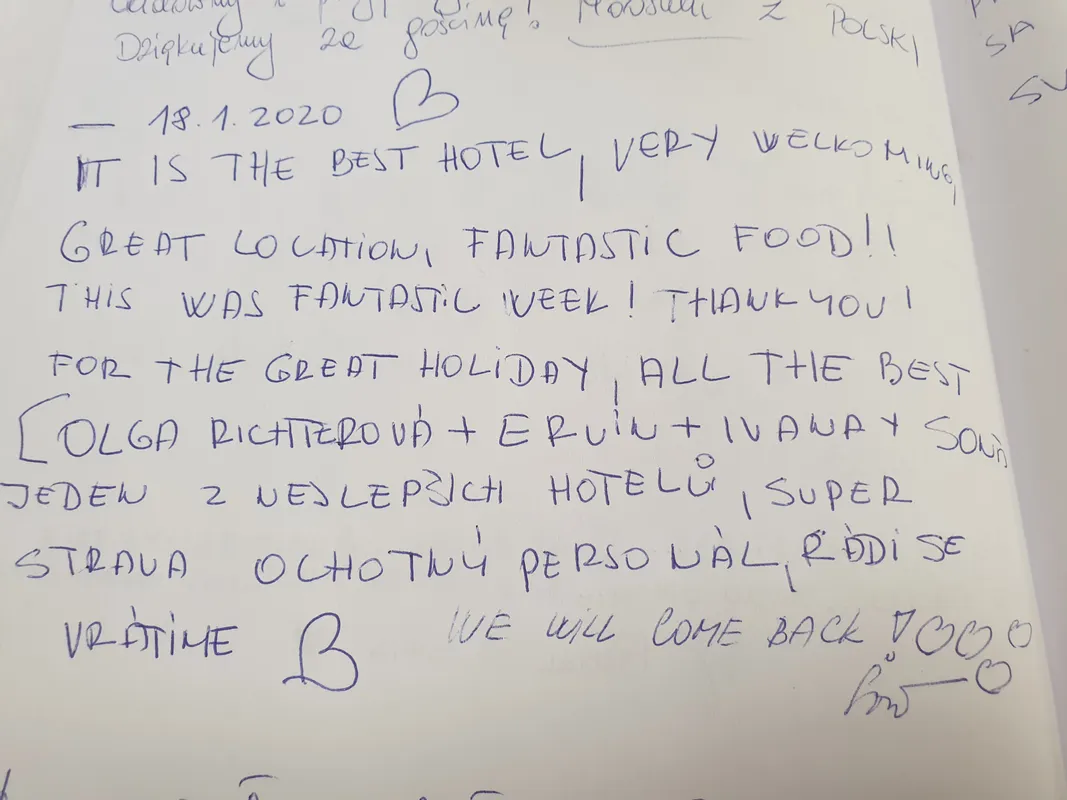 Dziękujemy za gościnę! z POLSKI
— 18.1.2020
IT IS THE BEST HOTEL, VERY WELKOMING,
GREAT LOCATION, FANTASTIC FOOD!!
THIS WAS FANTASTIC WEEK! THANK YOU!
FOR THE GREAT HOLIDAY, ALL THE BEST
[OLGA RICHTEROVÁ + ERVÍN + IVANA + SOŇA
JEDEN Z NEJLEPŠÍCH HOTELŮ, SUPER
STRAVA OCHOTNÝ PERSONÁL, RÁDI SE
VRÁTÍME WE WILL COME BACK!